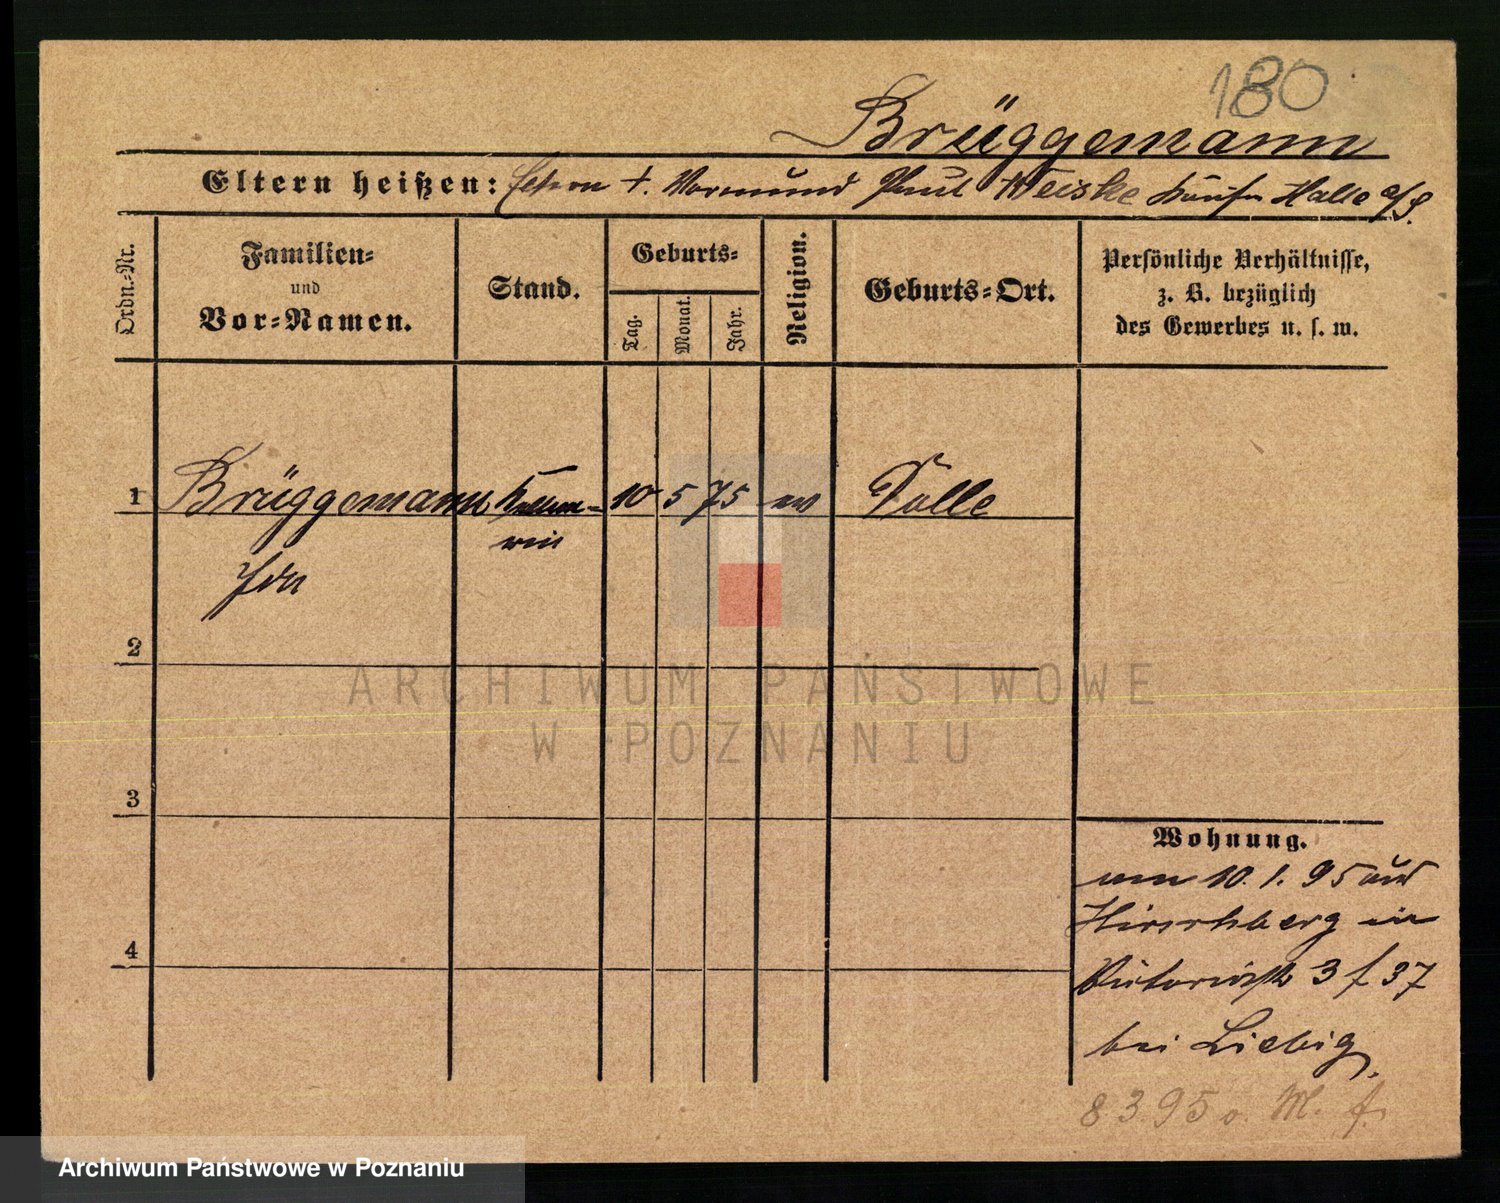 180
Brüggemann
Eltern heißen: Eltern †. Vormund Paul Weiske Kaufm Halle a/S.
Ordn.-Nr.
Familien-
und
Vor-Namen.
Stand.
Geburts-
Tag.
Monat.
Jahr.
Religion.
Geburts-Ort.
Persönliche Verhältnisse,
z. B. bezüglich
des Gewerbes u. s. w.
1 Brüggemann Kellne- 10 5 75 ev
rin
Ida
2
3
4
Wohnung.
am 10. 1. 95 aus
Hirschberg in
Victoriastr 3 f 37
bei Liebig.
8 3 95 o. M. f.
ARCHIWUM PAŃSTWOWE
W POZNANIU
Archiwum Państwowe w Poznaniu